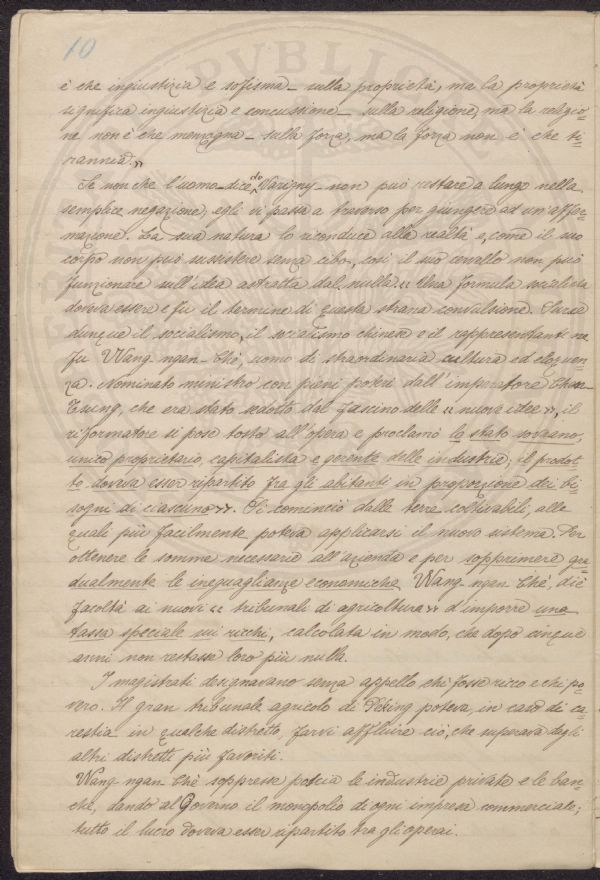 10
è che ingiustizia e sofisma_ sulla proprietà, ma la proprietà
significa ingiustizia e concussione_ sulla religione, ma la religio=
ne non è che menzogna_ sulla forza, ma la forza non è che ti=
rannia.»
Se non che l'uomo_dice de Varigny_ non può restare a lungo nella
semplice negazione; egli vi passa a traverso per giungere ad un'affer=
mazione. La sua natura lo riconduce alla realtà e, come il suo
corpo non può sussistere senza cibo, così il suo cervello non può
funzionare sull'idea astratta dal nulla. « Una formula socialista
doveva essere e fu il termine di questa strana convulsione.
dunque il socialismo, il socialismo chinese e il rappresentante ne
fu Wang-ngan-Chè, uomo di straordinaria cultura ed eloquen=
za. Nominato ministro con pieni poteri dall'imperatore Chen-
Tsung, che era stato sedotto dal fascino delle « nuove idee », il
riformatore si pose tosto all'opera e proclamò lo stato sovrano,
unico proprietario, capitalista e gerente delle industrie; il prodot=
to doveva esser ripartito fra gli abitanti in proporzione dei bi=
sogni di ciascuno». Si cominciò dalle terre coltivabili, alle
quali più facilmente poteva applicarsi il nuovo sistema. Per
ottenere le somme necessarie all'azienda e per sopprimere gra=
dualmente le ineguaglianze economiche Wang-ngan-Chè, diè
facoltà ai nuovi « tribunali di agricoltura » d'imporre una
tassa speciale sui ricchi, calcolata in modo, che dopo cinque
anni non restasse loro più nulla.
I magistrati designavano senza appello chi fosse ricco e chi po=
vero. Il gran tribunale agricolo di Peking poteva, in caso di ca=
restia in qualche distretto, farvi affluire ciò, che superava degli
altri distretti più favoriti.
Wang-ngan-Chè soppresse poscia le industrie private e le ban=
che, dando al Governo il monopolio di ogni impresa commerciale;
tutto il lucro doveva esser ripartito tra gli operai.